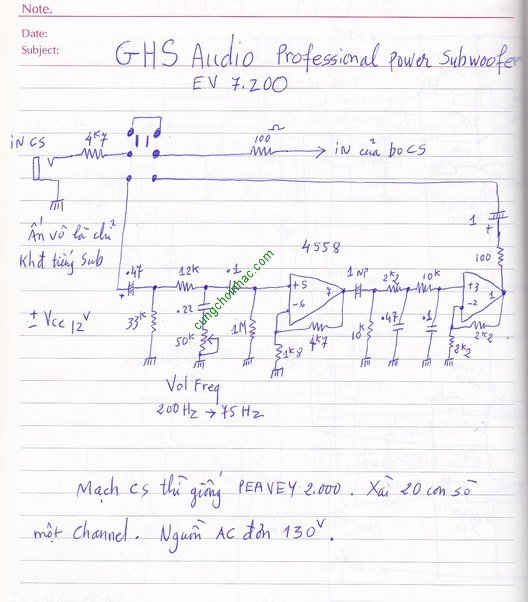 Note.
Date:
Subject:
GHS Audio Professional Power Subwoofer
EV 7.200
iN CS
4K7
100 Ω
iN của bo CS
Ấn vô là chỉ
khđ tiếng Sub
± Vcc 12V
.47
+
33K
12K
.22
50K
.1
1M
4558
+5
-6
7
1K8
4K7
1 NP
10K
2K2
.47
10K
.1
+3
-2
1
2K2
2K2
100
1
+
cungchoinhac.com
Vol Freq
200Hz → 75Hz
Mạch CS thì giống PEAVEY 2.000. Xài 20 con sò
một channel. Nguồn AC đơn 130V.